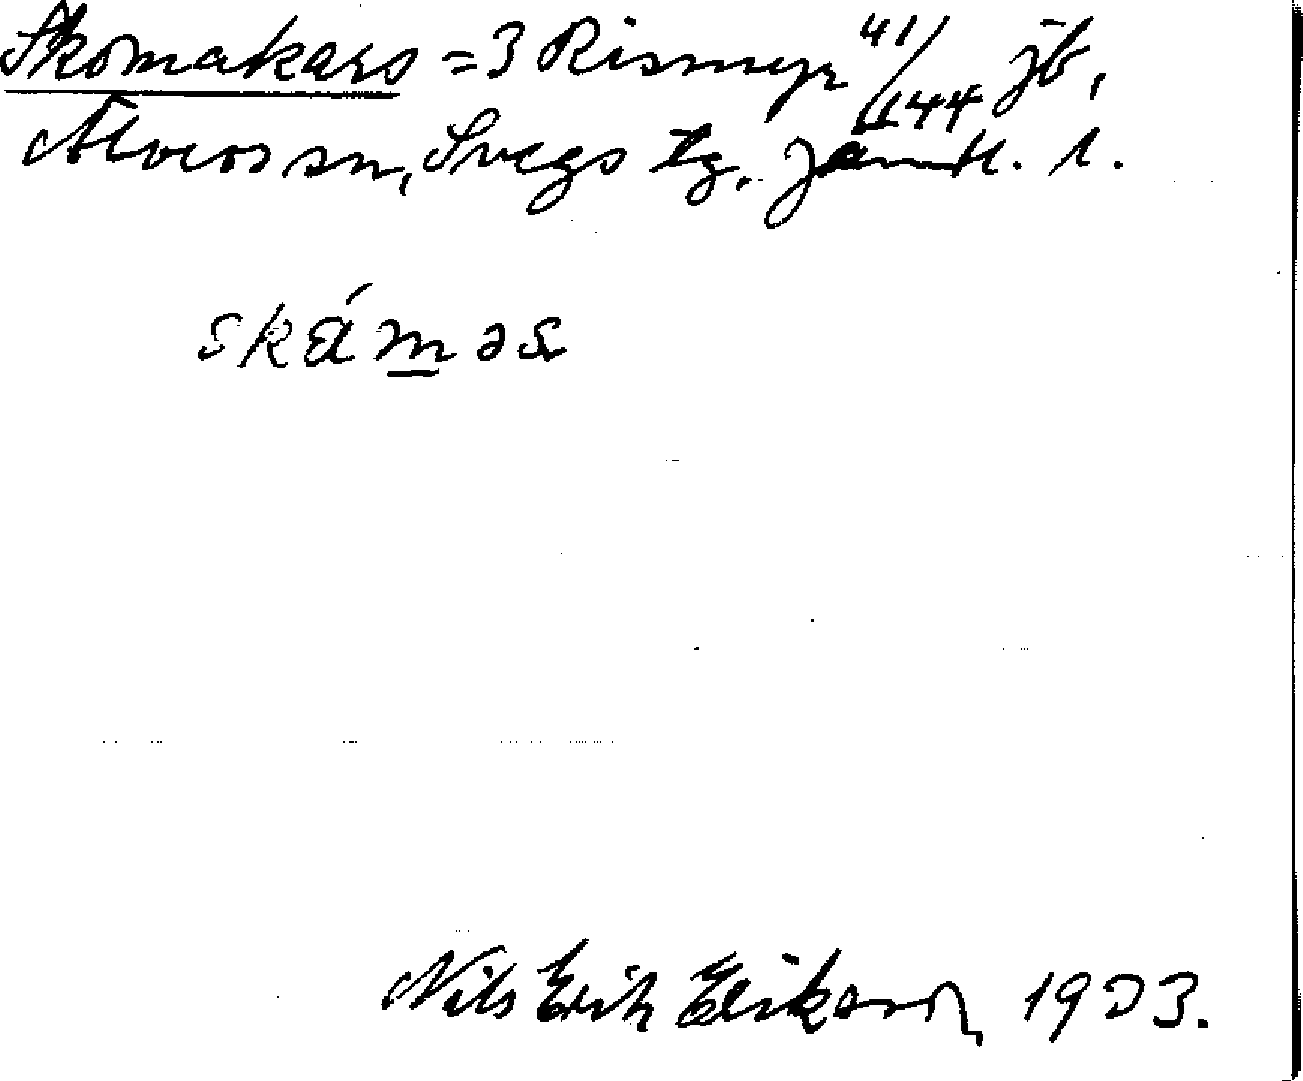 Skomakars = 3 Rismyr 41/144 jb,
Älvros sn, Svegs tg. Jämtl. l.
skɑ́m̲əs
Nils Erik Erikson 1923.